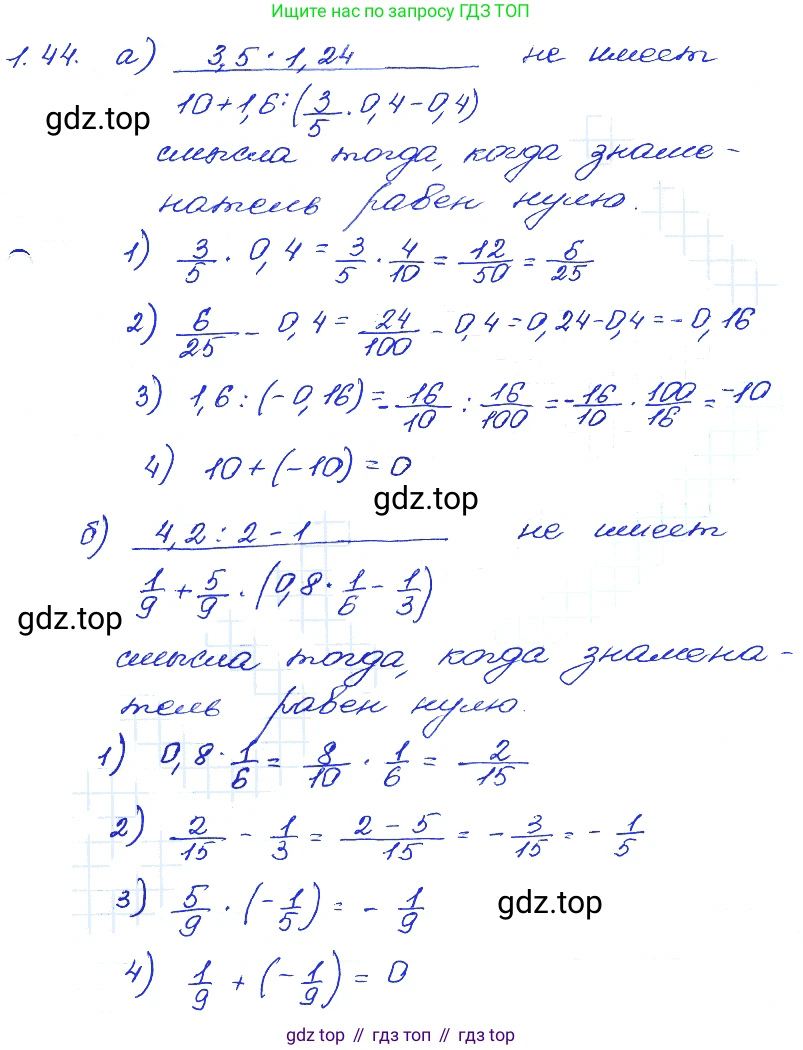 Ищите нас по запросу ГДЗ ТОП
1.44. а) (3,5 · 1,24)/(10+1,6:(3/5 · 0,4-0,4)) не имеет
gdz.top
смысла тогда, когда знаме-
натель равен нулю.
1) 3/5 · 0,4 = 3/5 · 4/10 = 12/50 = 6/25
2) 6/25 - 0,4 = 24/100 - 0,4 = 0,24-0,4 = -0,16
3) 1,6 : (-0,16) = -16/10 : 16/100 = -16/10 · 100/16 = -10
4) 10+(-10) = 0
gdz.top
б) (4,2 : 2 - 1)/(1/9 + 5/9 · (0,8 · 1/6 - 1/3)) не имеет
gdz.top
смысла тогда, когда знамена-
тель равен нулю.
1) 0,8 · 1/6 = 8/10 · 1/6 = 2/15
2) 2/15 - 1/3 = (2-5)/15 = -3/15 = -1/5
3) 5/9 · (-1/5) = -1/9
gdz.top
4) 1/9 + (-1/9) = 0
gdz top // гдз топ // gdz top